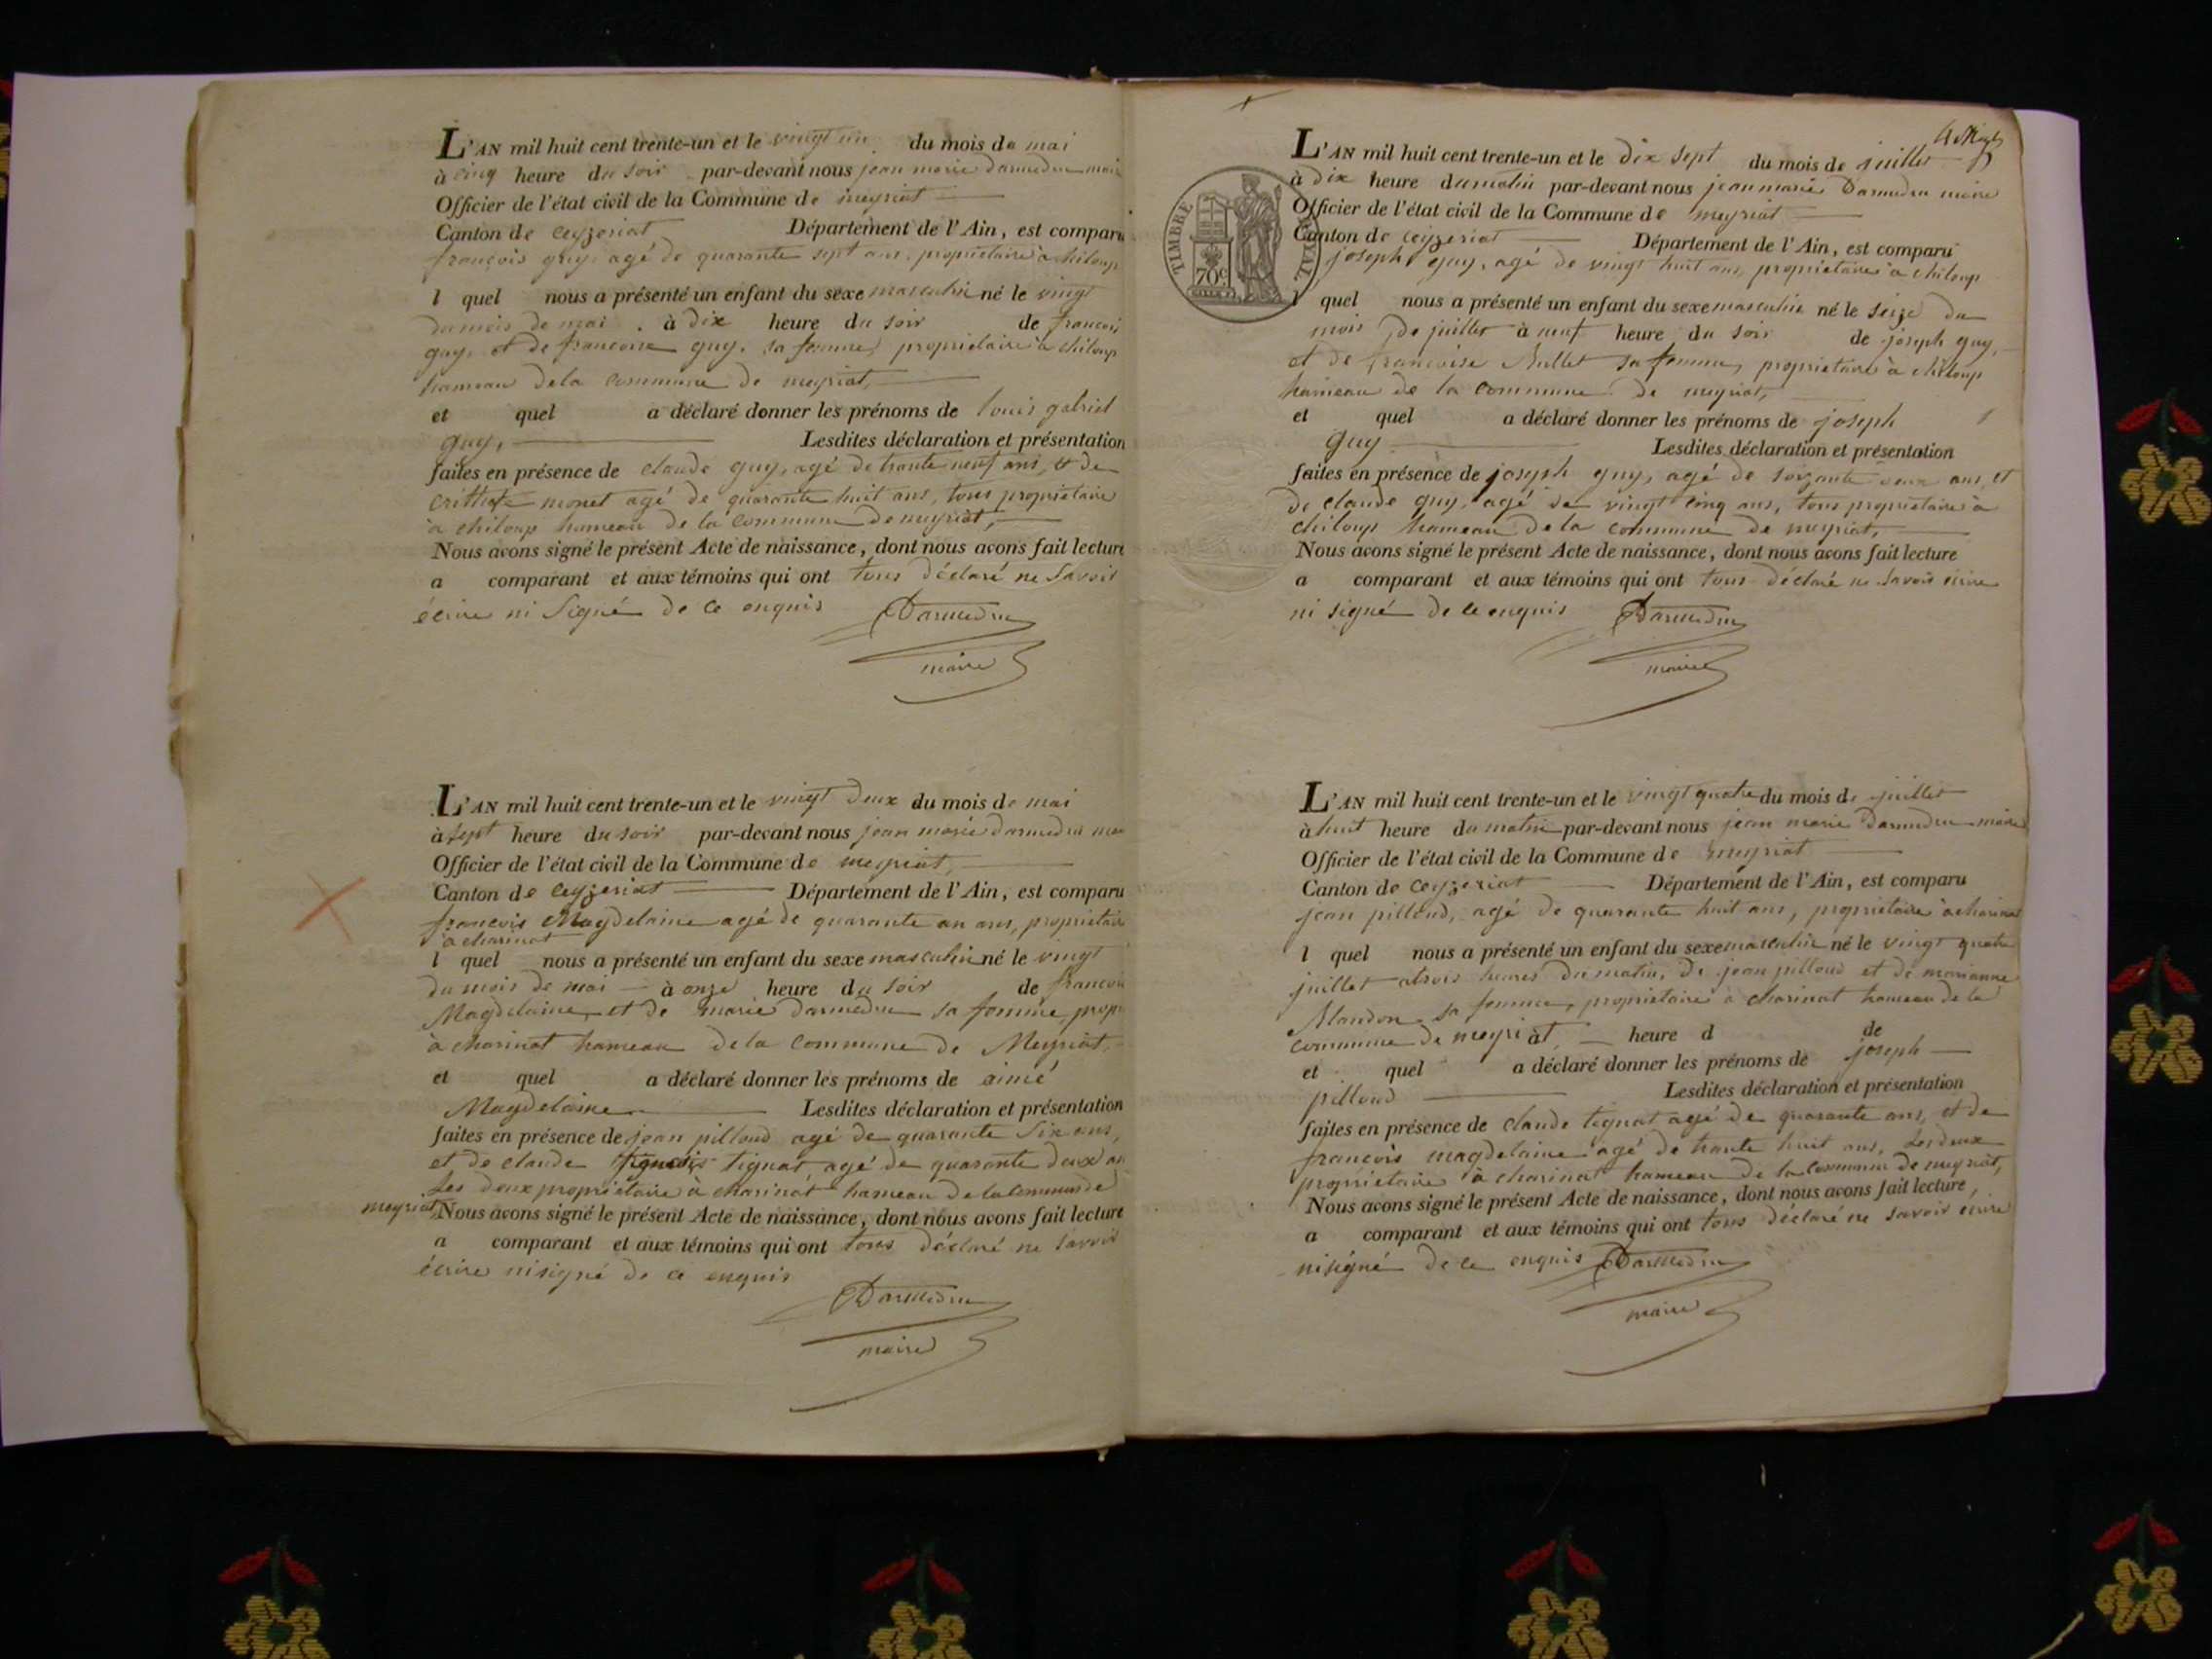 L'AN mil huit cent trente-un et le vingt un du mois de mai
à cinq heure du soir par-devant nous jean marie darmedru maire
Officier de l'état civil de la Commune de meyriat
Canton de ceyzeriat Département de l'Ain, est comparu
françois guy, agé de quarante sept ans, proprietaire à chiloup
l quel nous a présenté un enfant du sexe masculin né le vingt
du mois de mai à dix heure du soir de francois
guy, et de francoise guy, sa femme, proprietaire à chiloup
hameau de la commune de meyriat,
et quel a déclaré donner les prénoms de louis gabriel
guy, Lesdites déclaration et présentation
faites en présence de claude guy, agé de trante neuf ans, et de
monet agé de quarante huit ans, tous proprietaire
à chiloup hameau de la commune de meyriat,
Nous avons signé le présent Acte de naissance, dont nous avons fait lecture
a comparant et aux témoins qui ont tous déclaré ne savoir
écrire ni signé de ce enquis Darmedru
maire
L'AN mil huit cent trente-un et le vingt deux du mois de mai
à sept heure du soir par-devant nous jean marie darmedru
Officier de l'état civil de la Commune de meyriat,
Canton de ceyzeriat Département de l'Ain, est comparu
francois Magdelaine agé de quarante un ans, proprietaire
à charinat
l quel nous a présenté un enfant du sexe masculin né le vingt
du mois de mai à onze heure du soir de francois
Magdelaine, et de marie darmedru sa femme, prop
à charinat hameau de la commune de Meyriat,
et quel a déclaré donner les prénoms de aimé
Magdelaine Lesdites déclaration et présentation
faites en présence de jean pilloud agé de quarante six ans,
et de claude tignat agé de quarante deux an
les deux proprietaire à charinat hameau de la commune de
meyriat, Nous avons signé le présent Acte de naissance, dont nous avons fait lecture
a comparant et aux témoins qui ont tous déclaré ne savoir
écrire ni signé de ce enquis
Darmedru
maire
TIMBRE ROYAL
70c
L'AN mil huit cent trente-un et le dix sept du mois de juillet
à dix heure du matin par-devant nous jean marie Darmedru maire
Officier de l'état civil de la Commune de meyriat
Canton de ceyzeriat Département de l'Ain, est comparu
joseph guy, agé de vingt huit ans, proprietaire à chiloup
l quel nous a présenté un enfant du sexe masculin né le seize du
mois de juillet à neuf heure du soir de joseph guy,
et de francoise sa femme, proprietaire à chiloup
hameau de la commune de meyriat,
et quel a déclaré donner les prénoms de joseph
guy Lesdites déclaration et présentation
faites en présence de joseph guy, agé de soixante deux ans, et
de claude guy, agé de vingt cinq ans, tous proprietaire à
chiloup hameau de la commune de meyriat,
Nous avons signé le présent Acte de naissance, dont nous avons fait lecture
a comparant et aux témoins qui ont tous déclaré ne savoir écrire
ni signé de ce enquis Darmedru
maire
L'AN mil huit cent trente-un et le vingt quatre du mois de juillet
à huit heure du matin par-devant nous jean marie darmedru maire
Officier de l'état civil de la Commune de meyriat
Canton de ceyzeriat Département de l'Ain, est comparu
jean pilloud, agé de quarante huit ans, proprietaire à charinat
l quel nous a présenté un enfant du sexe masculin né le vingt quatre
juillet atrois heures du matin, de jean pilloud et de marianne
Blandon sa femme, proprietaire à charinat hameau de la
commune de meyriat, heure d de
et quel a déclaré donner les prénoms de joseph
pilloud Lesdites déclaration et présentation
faites en présence de claude tignat agé de quarante ans, et de
francois magdelaine agé de trante huit ans, les deux
proprietaire à charinat hameau de la commune de meyriat,
Nous avons signé le présent Acte de naissance, dont nous avons fait lecture,
a comparant et aux témoins qui ont tous déclaré ne savoir écrire
ni signé de ce enquis Darmedru
maire